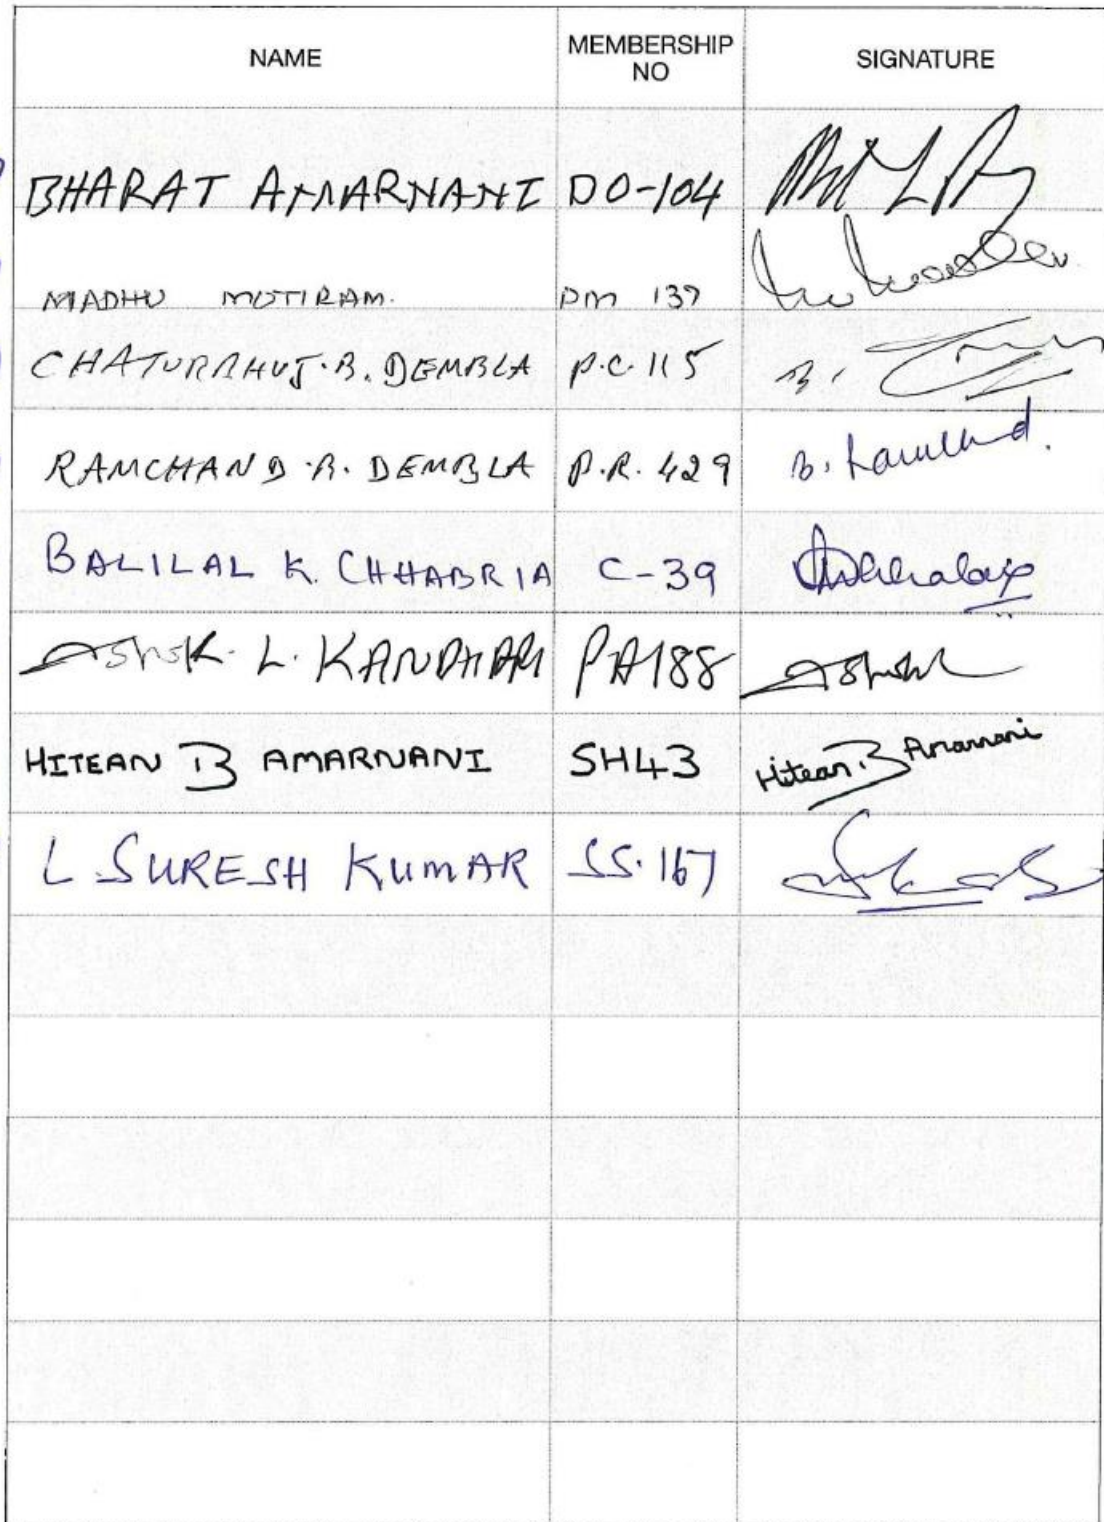 NAME MEMBERSHIP NO SIGNATURE
BHARAT AMARNANI DO-104
MADHU MOTIRAM. PM 137
CHATURBHUJ.B. DEMBLA P.C. 115 B.
RAMCHAND B. DEMBLA P.R. 429 B. Ramchand.
BALILAL K. CHHABRIA C-39
ASHOK L. KANDHARI PA188 Ashok
HITEAN B AMARNANI SH43 Hitean B Amarnani
L SURESH KUMAR SS.167